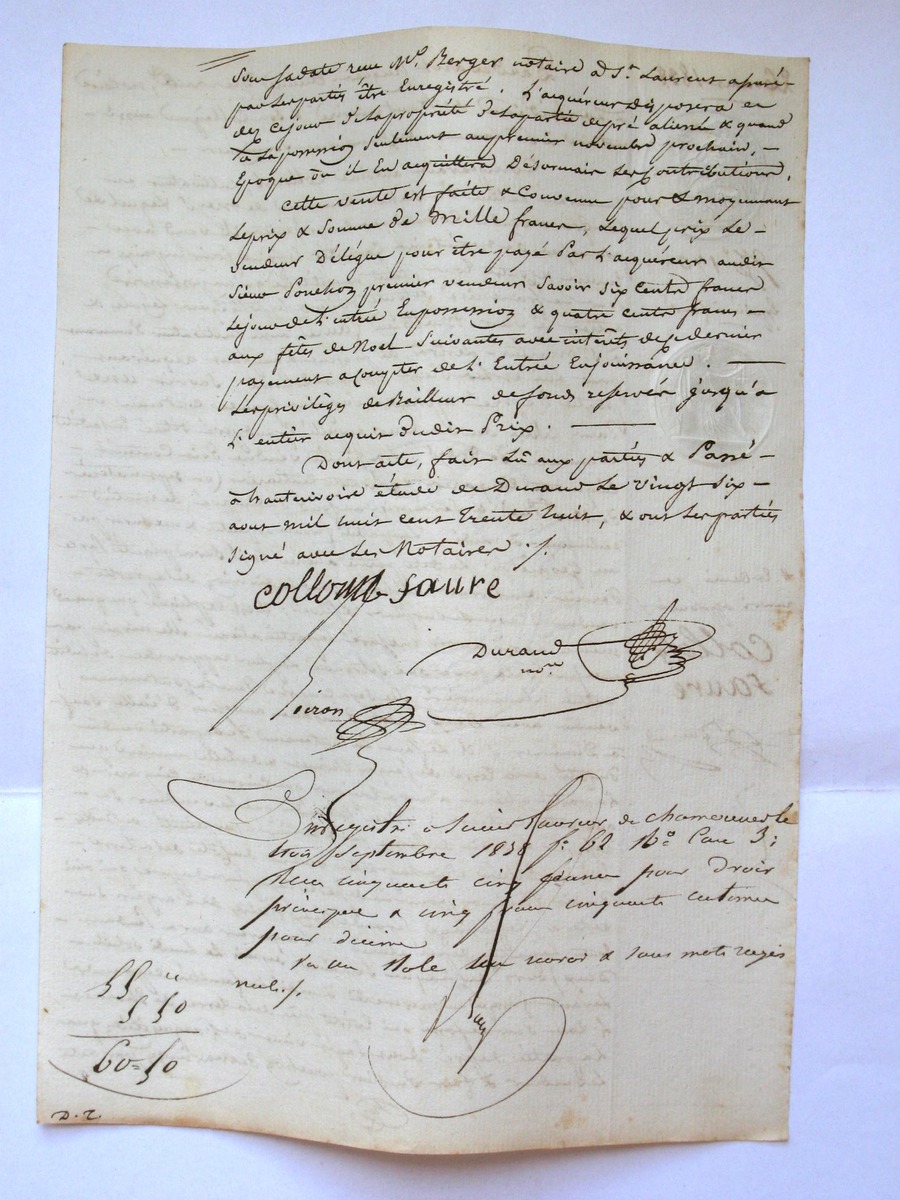 Sous sa date reçu Me. Berger notaire a St. Laurent assuré
par les partiés être Enregistré. L'acquéreur disposera en
dez ce jour de la propriété de la partie de pré aliéné & quand
à la possession seulement au premier novembre prochain, —
Epoque où il En acquittera Désormais les Contributions.
Cette vente est faite & Convenue pour & moyennant
le prix & Somme de Mille francs, lequel prix le —
vendeur Délégue pour être payé Par l'acquereur audit
Sieur Ponchon premier vendeur Savoir Six Cents francs
le jour de l'entrée En possession & quatre cents francs —
aux fêtes de Noel Suivantes avec intérêts de ce dernier
payement a Compter de l'Entrée En jouissance. —
les privilèges de Bailleur de fonds reservés jusqu'a
l'entier acquit dudit Prix. —
Dont acte, fait Lû aux partiés & Passé —
à hauterivoire étude de Durand Le vingt Six —
aout mil huit cent trente huit, & ont les partiés
Signé avec les Notaires ./.
Collomb faure
Durand
nore.
Poiron
Enregistré a Saint Laurent de chamousset le
trois Septembre 1838 fo. 62 Ro Case 3:
Reçu cinquante cinq francs pour droit
principal & cinq francs cinquante centimes
pour décime
nuls ./.
55 "
5 50
60=50
D. T.